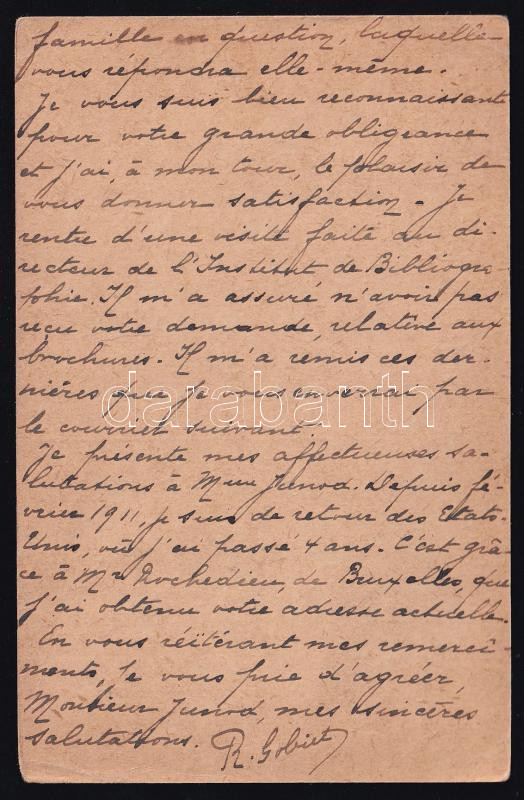 famille en question, laquelle
vous répondra elle-même.
Je vous suis bien reconnaissante
pour votre grande obligeance
et j'ai, à mon tour, le plaisir de
vous donner satisfaction. Je
rentre d'une visite faite au di-
recteur de l'Institut de Bibliogra-
phie. Il m'a assuré n'avoir pas
reçu votre demande, relative aux
brochures. Il m'a remis ces der-
nières que je vous enverrai par
darabanth
le courrier suivant.
Je présente mes affectueuses sa-
lutations à Mme Junod. Depuis fé-
vrier 1911, je suis de retour des Etats-
Unis, où j'ai passé 4 ans. C'est grâ-
ce à Mr Rochedieu, de Bruxelles, que
j'ai obtenu votre adresse actuelle.
En vous réïtérant mes remercî-
ments, je vous prie d'agréer,
Monsieur Junod, mes sincères
salutations. R. Gobiet